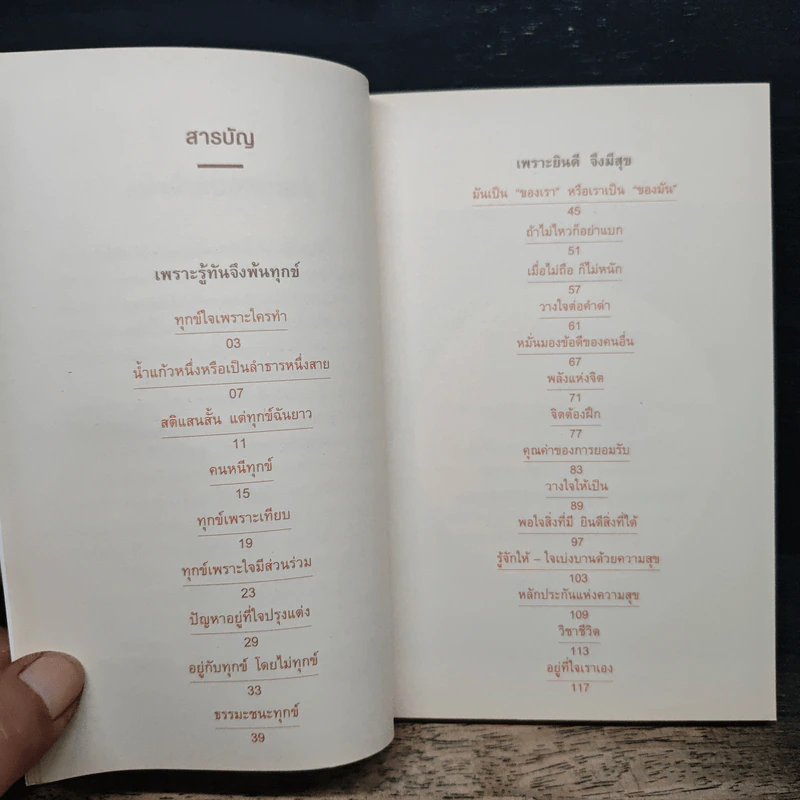 สารบัญ
เพราะรู้ทันจึงพ้นทุกข์
ทุกข์ใจเพราะใครทำ
03
น้ำแก้วหนึ่งหรือเป็นลำธารหนึ่งสาย
07
สติแสนสั้น แต่ทุกข์ฉันยาว
11
คนหนีทุกข์
15
ทุกข์เพราะเทียบ
19
ทุกข์เพราะใจมีส่วนร่วม
23
ปัญหาอยู่ที่ใจปรุงแต่ง
29
อยู่กับทุกข์ โดยไม่ทุกข์
33
ธรรมะชนะทุกข์
39
เพราะยินดี จึงมีสุข
มันเป็น "ของเรา" หรือเราเป็น "ของมัน"
45
ถ้าไม่ไหวก็อย่าแบก
51
เมื่อไม่ถือ ก็ไม่หนัก
57
วางใจต่อคำด่า
61
หมั่นมองข้อดีของคนอื่น
67
พลังแห่งจิต
71
จิตต้องฝึก
77
คุณค่าของการยอมรับ
83
วางใจให้เป็น
89
พอใจสิ่งที่มี ยินดีสิ่งที่ได้
97
รู้จักให้ – ใจเบ่งบานด้วยความสุข
103
หลักประกันแห่งความสุข
109
วิชาชีวิต
113
อยู่ที่ใจเราเอง
117